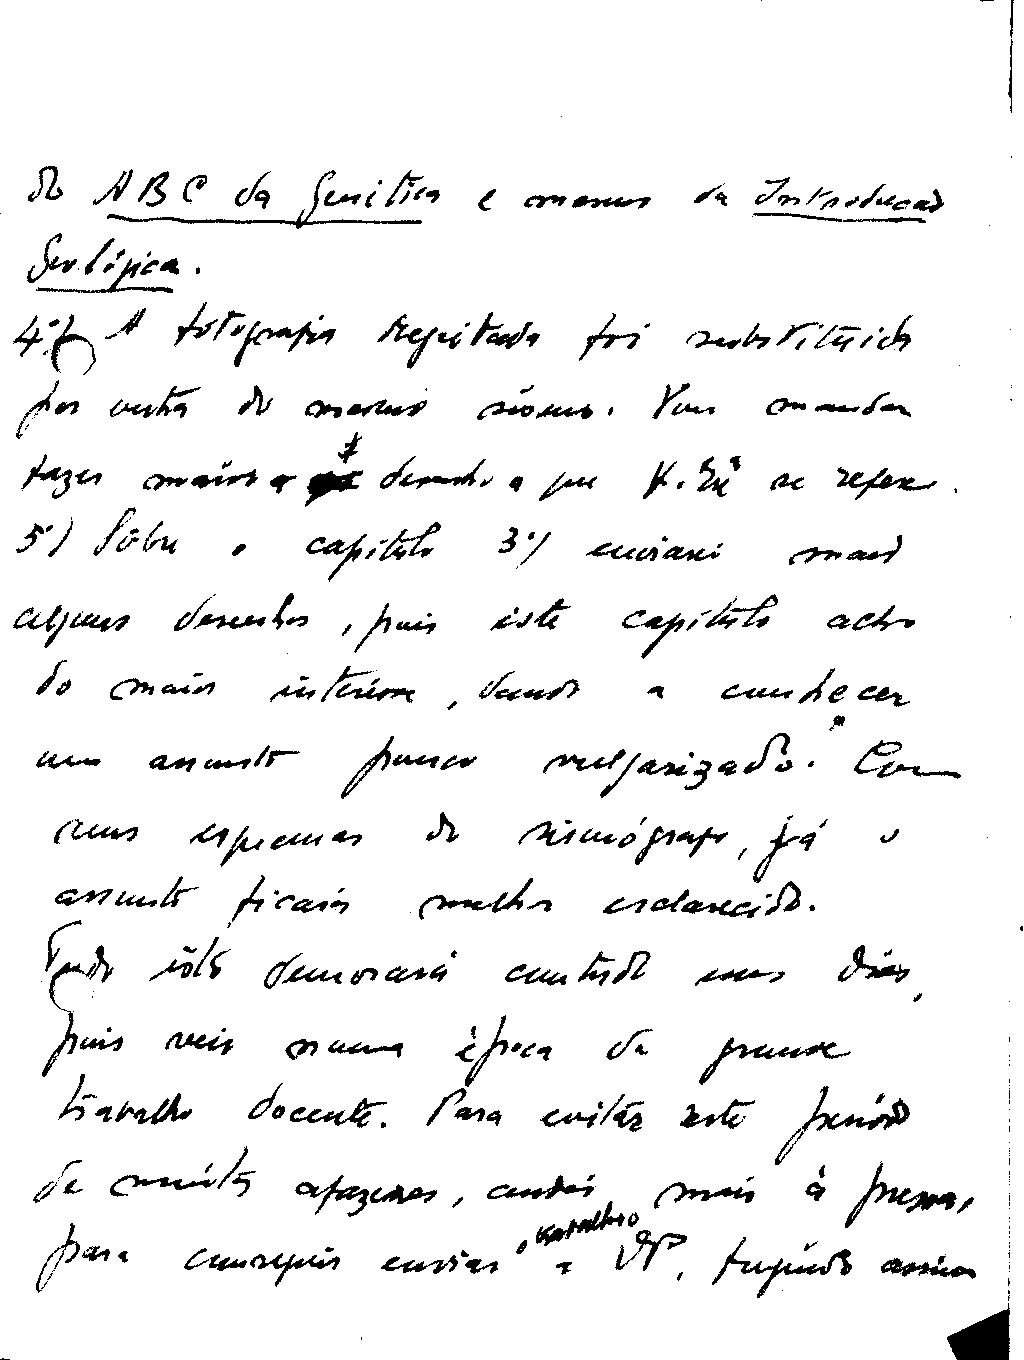 do ABC da Genética e menos da Introdução
Geológica.
4º) A fotografia rejeitada foi substituida
por outra do mesmo sismo. Vou mandar
fazer maior o desenho a que V. Exª se refere.
5º) Sôbre o capítulo 3º) enviarei mais
alguns desenhos, pois êste capítulo acho
do maior interêsse, dando a conhecer
um assunto pouco vulgarizado. Com
uns esquemas do sismógrafo, já o
assunto ficará melhor esclarecido.
Tudo isto demorará contudo uns dias,
pois veio numa época de grande
trabalho docente. Para evitar este período
de muitos afazeres, andei mais à pressa,
para conseguir enviar o trabalho a, fugindo assim